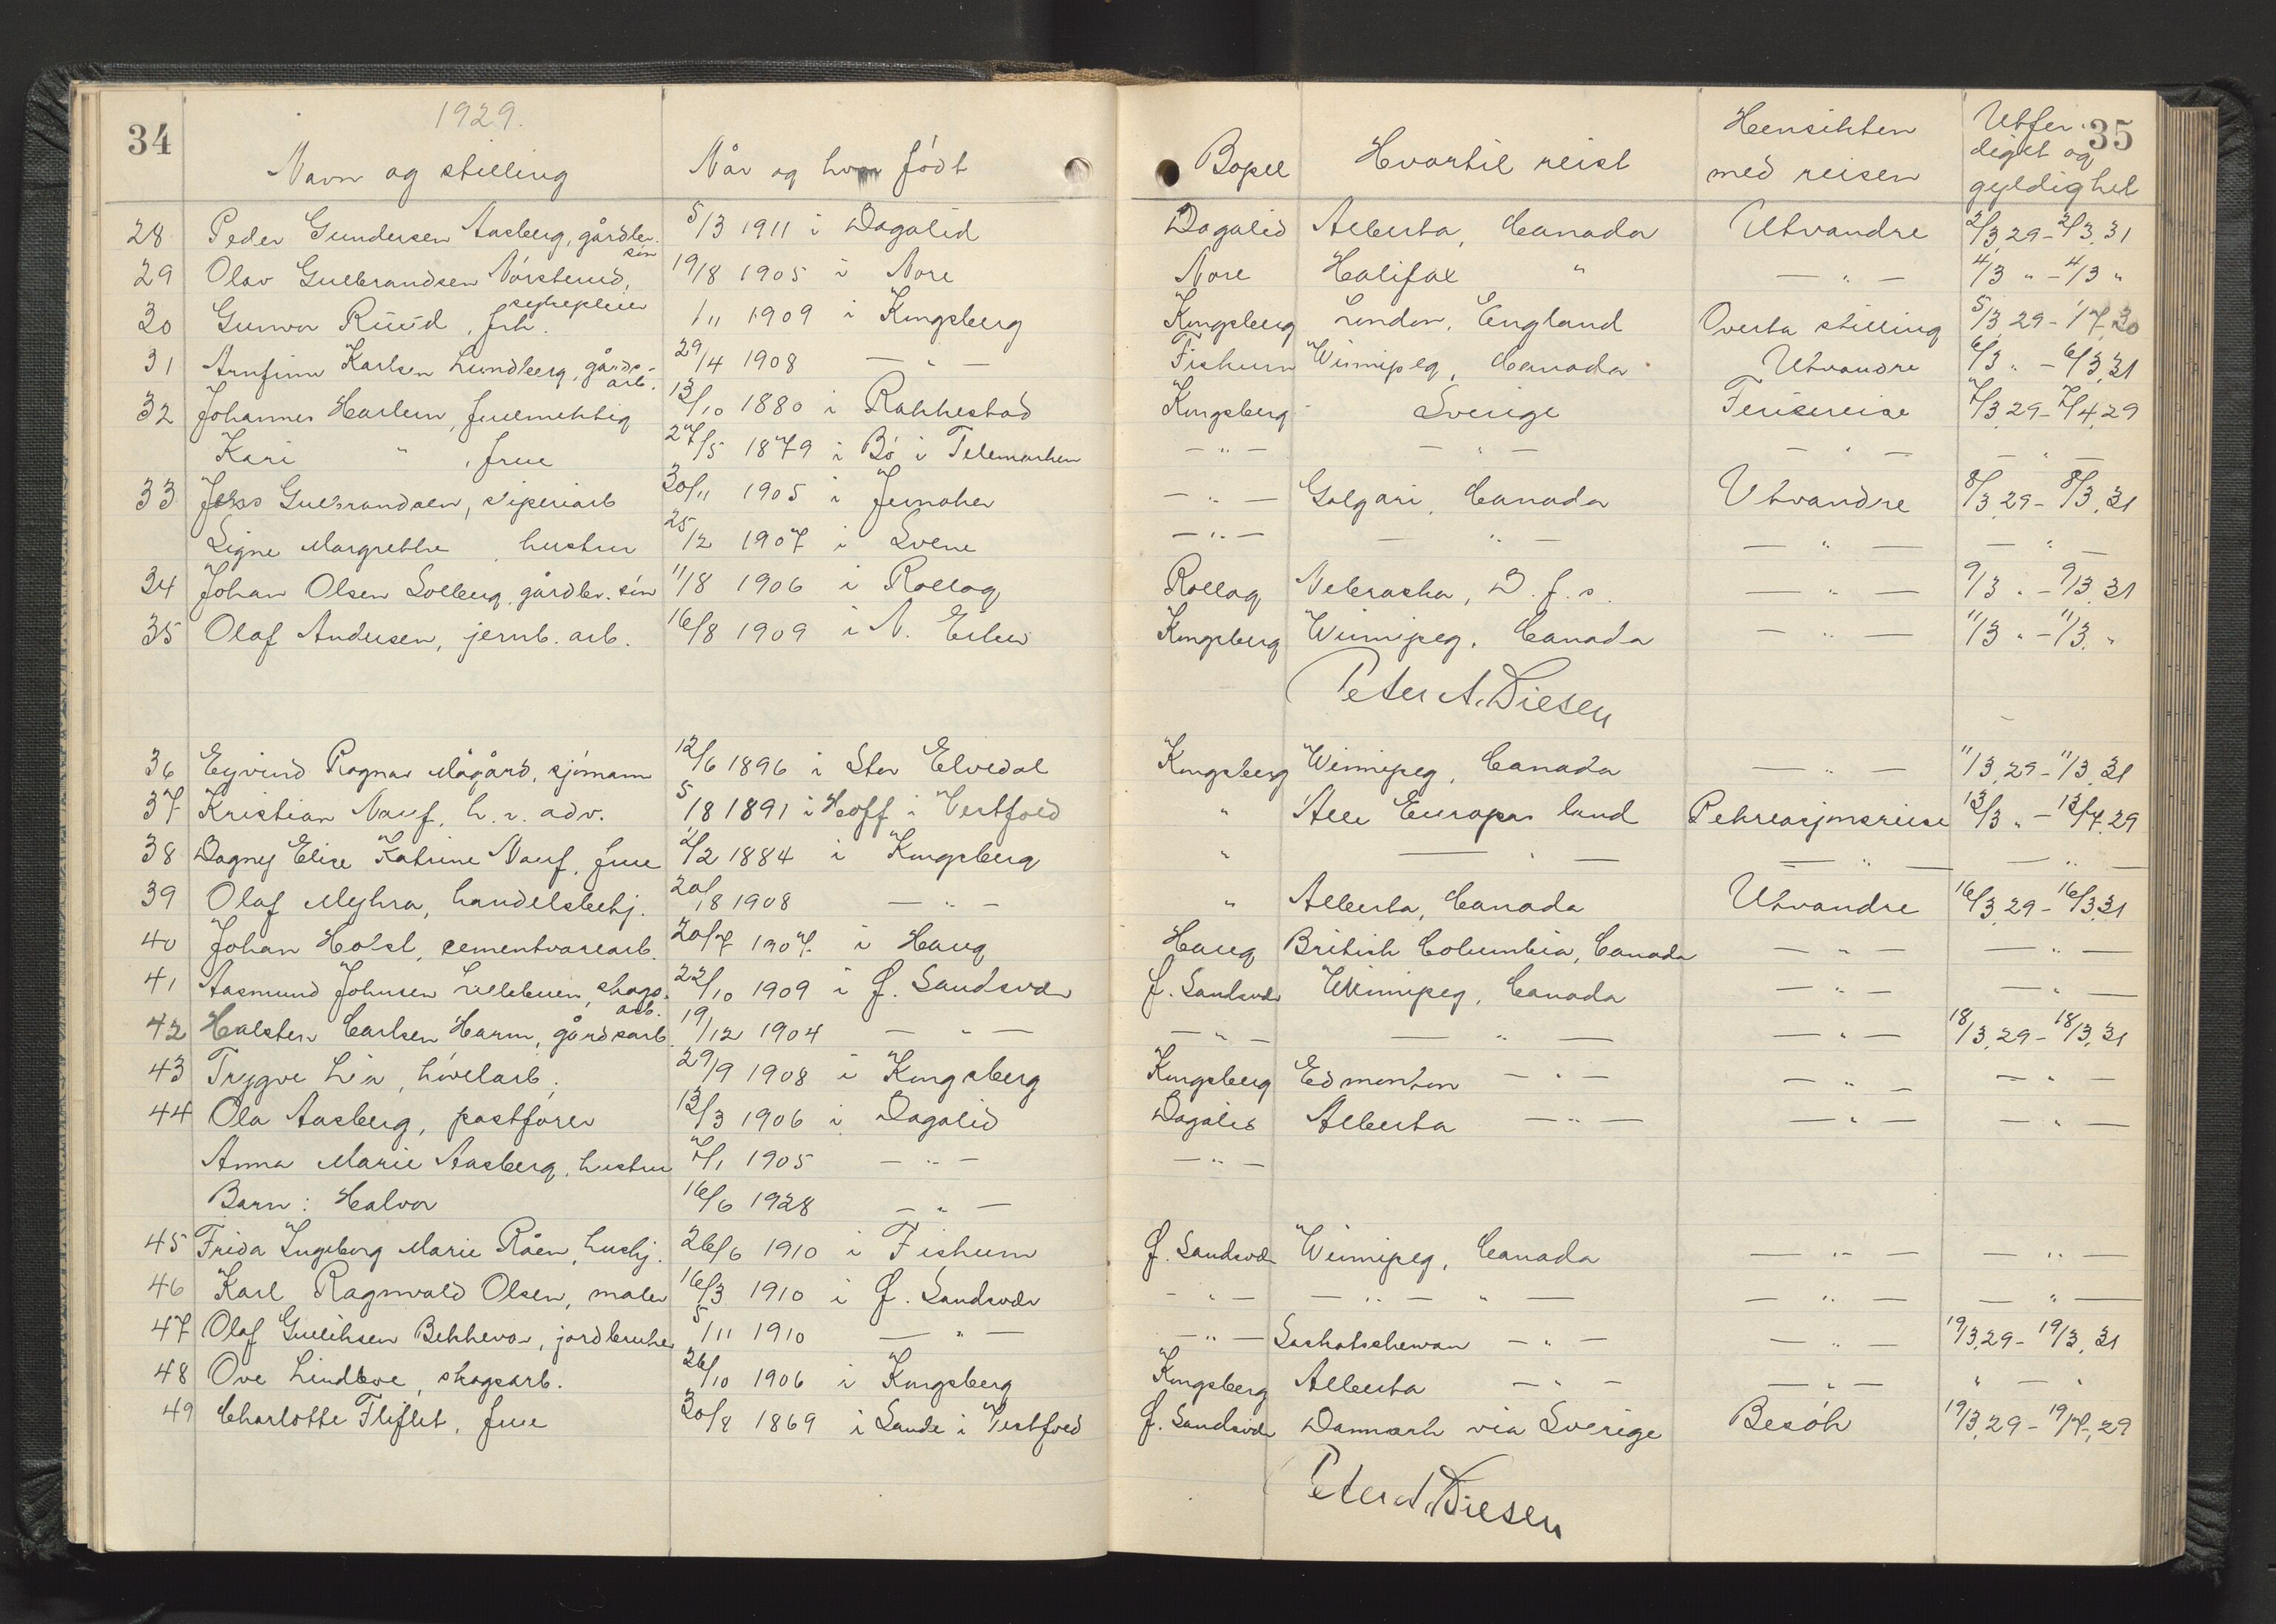 34 1929. 35
Navn og stilling Når og hvor født Bopel Hvortil reist Hensikten med reisen Utferdiget og gyldighet
28 Peder Gundersen Aasberg, gårdbr. søn 5/3 1911 i Dagalid Dagalid Alberta, Canada Utvandre 2/3.29 - 2/3.31
29 Olav Gulbrandsen Nørsterud, 19/8 1905 i Nore Nore Halifax " — " — 4/3 " - 4/3 "
30 Gunvor Ruud, frk. sykepleier 1/11 1909 i Kongsberg Kongsberg London, England Overta stilling 5/3 29 - 1/7.30
31 Arnfinn Karlsen Lundberg, gårdsarb. 29/4 1908 — " — Fiskum Winnipeg, Canada Utvandre 6/3 " - 6/3.31
32 Johannes Harlem, fuelmektig 13/10 1880 i Rakkestad Kongsberg Sverige Feriereise 7/3.29 - 7/4.29
Kari " , frue 27/5 1879 i Bø i Telemarken — " — — " — — " — — " —
33 Jens Gulbrandsen, sliperiarb 30/11 1905 i Jernaker — " — Galgari, Canada Utvandre 8/3.29 - 8/3.31
Signe Margrethe hustru 25/2 1907 i Svene — " — — " — — " — — " —
34 Johan Olsen Solberg, gårdbr. søn 11/8 1906 i Rollag Rollag Nebraska, D. f. s. — " — 9/3 " - 9/3.31
35 Olaf Andersen, jernb. arb. 16/8 1909 i N. Eiker Kongsberg Winnipeg, Canada — " — 11/3 " - 11/3. "
Peter A. Diesen
36 Eyvind Ragnar Mågård, sjømann 12/6 1896 i Stor Elvedal Kongsberg Winnipeg, Canada — " — 11/3.29 - 11/3.31
37 Kristian Nauf, h. r. adv. 5/8 1891 i Hoff i Vestfold " Alle Europas land Rekreasjonsreise 13/3 " - 13/4.29
38 Dagny Elise Katrine Nauf, frue 2/2 1884 i Kongsberg " — " — — " — — " —
39 Olaf Myhra, handelsbetj. 20/8 1908 — " — " Alberta, Canada Utvandre 16/3.29 - 16/3.31
40 Johan Holst, cementvarearb. 20/7 1907 i Haug Haug British Columbia, Canada — " — — " —
41 Aasmund Johnsen Vellebuen, skogsarb. 22/10 1909 i Ø. Sandsvær Ø. Sandsvær Winnipeg, Canada — " — — " —
42 Halsten Carlsen Harm, gårdsarb. 19/12 1904 — " — — " — — " — — " — 18/3.29 - 18/3.31
43 Trygve Lia, høvelarb. 29/9 1908 i Kongsberg Kongsberg Edmonton — " — — " — — " —
44 Ola Aasberg, postfører 13/3 1906 i Dagalid Dagalid Alberta — " — — " — — " —
Anna Marie Aasberg, hustru 7/1 1905 — " — — " —
Barn: Halvor 16/6 1928 — " —
45 Frida Ingeborg Marie Råen, hushj. 26/6 1910 i Fiskum Ø. Sandsvær Winnipeg, Canada — " — — " —
46 Karl Ragnvald Olsen, maler 16/3 1910 i Ø. Sandsvær — " — — " — " — — " — — " —
47 Olaf Gulliksen Bekkevar, jordbruker 5/11 1910 — " — — " — Saskatschewan — " — — " — 19/3.29 - 19/3.31
48 Ove Lindboe, skogsarb. 26/10 1906 i Kongsberg Kongsberg Alberta — " — — " — " — "
49 Charlotte Fliflet, frue 30/8 1869 i Sande i Vestfold Ø. Sandsvær Danmark via Sverige Besøk 19/3.29 - 19/4.29
Peter A. Diesen